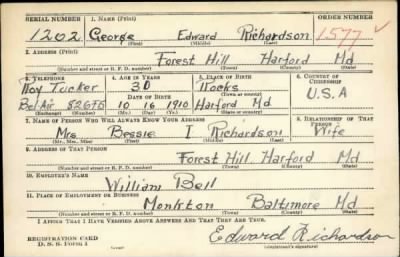 SERIAL NUMBER 1. NAME (Print) ORDER NUMBER
1202 George Edward Richardson 1577
(First) (Middle) (Last)
2. ADDRESS (Print)
Forest Hill Harford Md
(Number and street or R. F. D. number) (Town) (County) (State)
3. TELEPHONE 4. AGE IN YEARS 5. PLACE OF BIRTH 6. COUNTRY OF CITIZENSHIP
Roy Tucker 30 Rocks
(Town or county)
DATE OF BIRTH
Bel Air 826F5 10 16 1910 Harford Md. U.S.A
(Exchange) (Number) (Mo.) (Day) (Yr.) (State or country)
7. NAME OF PERSON WHO WILL ALWAYS KNOW YOUR ADDRESS 8. RELATIONSHIP OF THAT PERSON
Mrs Bessie I Richardson Wife
(Mr., Mrs., Miss) (First) (Middle) (Last)
9. ADDRESS OF THAT PERSON
Forest Hill Harford Md
(Number and street or R. F. D. number) (Town) (County) (State)
10. EMPLOYER'S NAME
William Bell
11. PLACE OF EMPLOYMENT OR BUSINESS
Monkton Baltimore Md
(Number and street or R. F. D. number) (Town) (County) (State)
I AFFIRM THAT I HAVE VERIFIED ABOVE ANSWERS AND THAT THEY ARE TRUE.
REGISTRATION CARD
D. S. S. Form 1
Edward Richardson
(Registrant's signature)